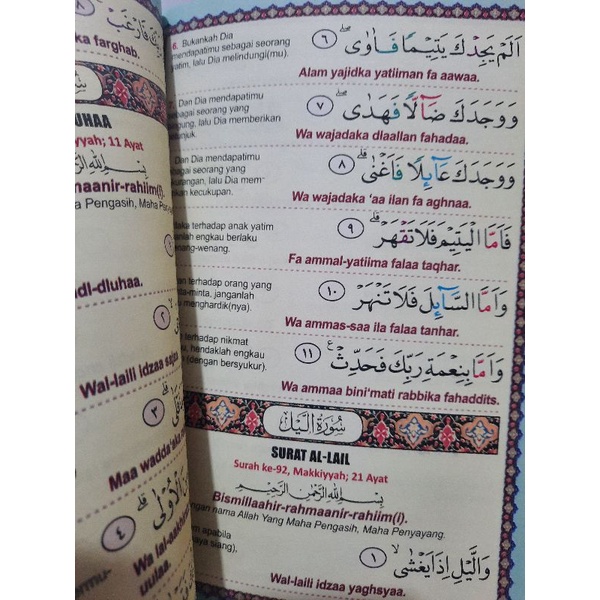 ka farghab.
UHAA
yyah; 11 Ayat
maanir-rahiim(i).
a Pengasih, Maha Penya
dl-dluhaa.
٢
Wal-laili idzaa saja
٣
Maa wadda'aka
٤
Wa lal-aakhi
uulaa.
6. Bukankah Dia
mendapatimu sebagai seorang
yatim, lalu Dia melindungi(mu).
اَلَمْ يَجِدْكَ يَتِيْمًا فَاٰوٰىۖ ٦
Alam yajidka yatiiman fa aawaa.
Dan Dia mendapatimu
sebagai seorang yang
bingung, lalu Dia memberikan
petunjuk.
وَوَجَدَكَ ضَاۤلًّا فَهَدٰىۖ ٧
Wa wajadaka dlaallan fahadaa.
Dan Dia mendapatimu
sebagai seorang yang
kurangan, lalu Dia mem-
kecukupan.
وَوَجَدَكَ عَاۤىِٕلًا فَاَغْنٰىۗ ٨
Wa wajadaka 'aa ilan fa aghnaa.
Maka terhadap anak yatim
janganlah engkau berlaku
wenang-wenang.
فَاَمَّا الْيَتِيْمَ فَلَا تَقْهَرْۗ ٩
Fa ammal-yatiima falaa taqhar.
terhadap orang yang
minta-minta, janganlah
menghardik(nya).
وَاَمَّا السَّاۤىِٕلَ فَلَا تَنْهَرْۗ ١٠
Wa ammas-saa ila falaa tanhar.
terhadap nikmat
, hendaklah engkau
(dengan bersyukur).
وَاَمَّا بِنِعْمَةِ رَبِّكَ فَحَدِّثْ ࣖ ١١
Wa ammaa bini'mati rabbika fahaddits.
سُوْرَةُ الَّيْلِ
SURAT AL-LAIL
Surah ke-92, Makkiyyah; 21 Ayat
بِسْمِ اللّٰهِ الرَّحْمٰنِ الرَّحِيْمِ
Bismillaahir-rahmaanir-rahiim(i).
dengan nama Allah Yang Maha Pengasih, Maha Penyayang.
apabila
siang),
وَالَّيْلِ اِذَا يَغْشٰىۙ ١
Wal-laili idzaa yaghsyaa.